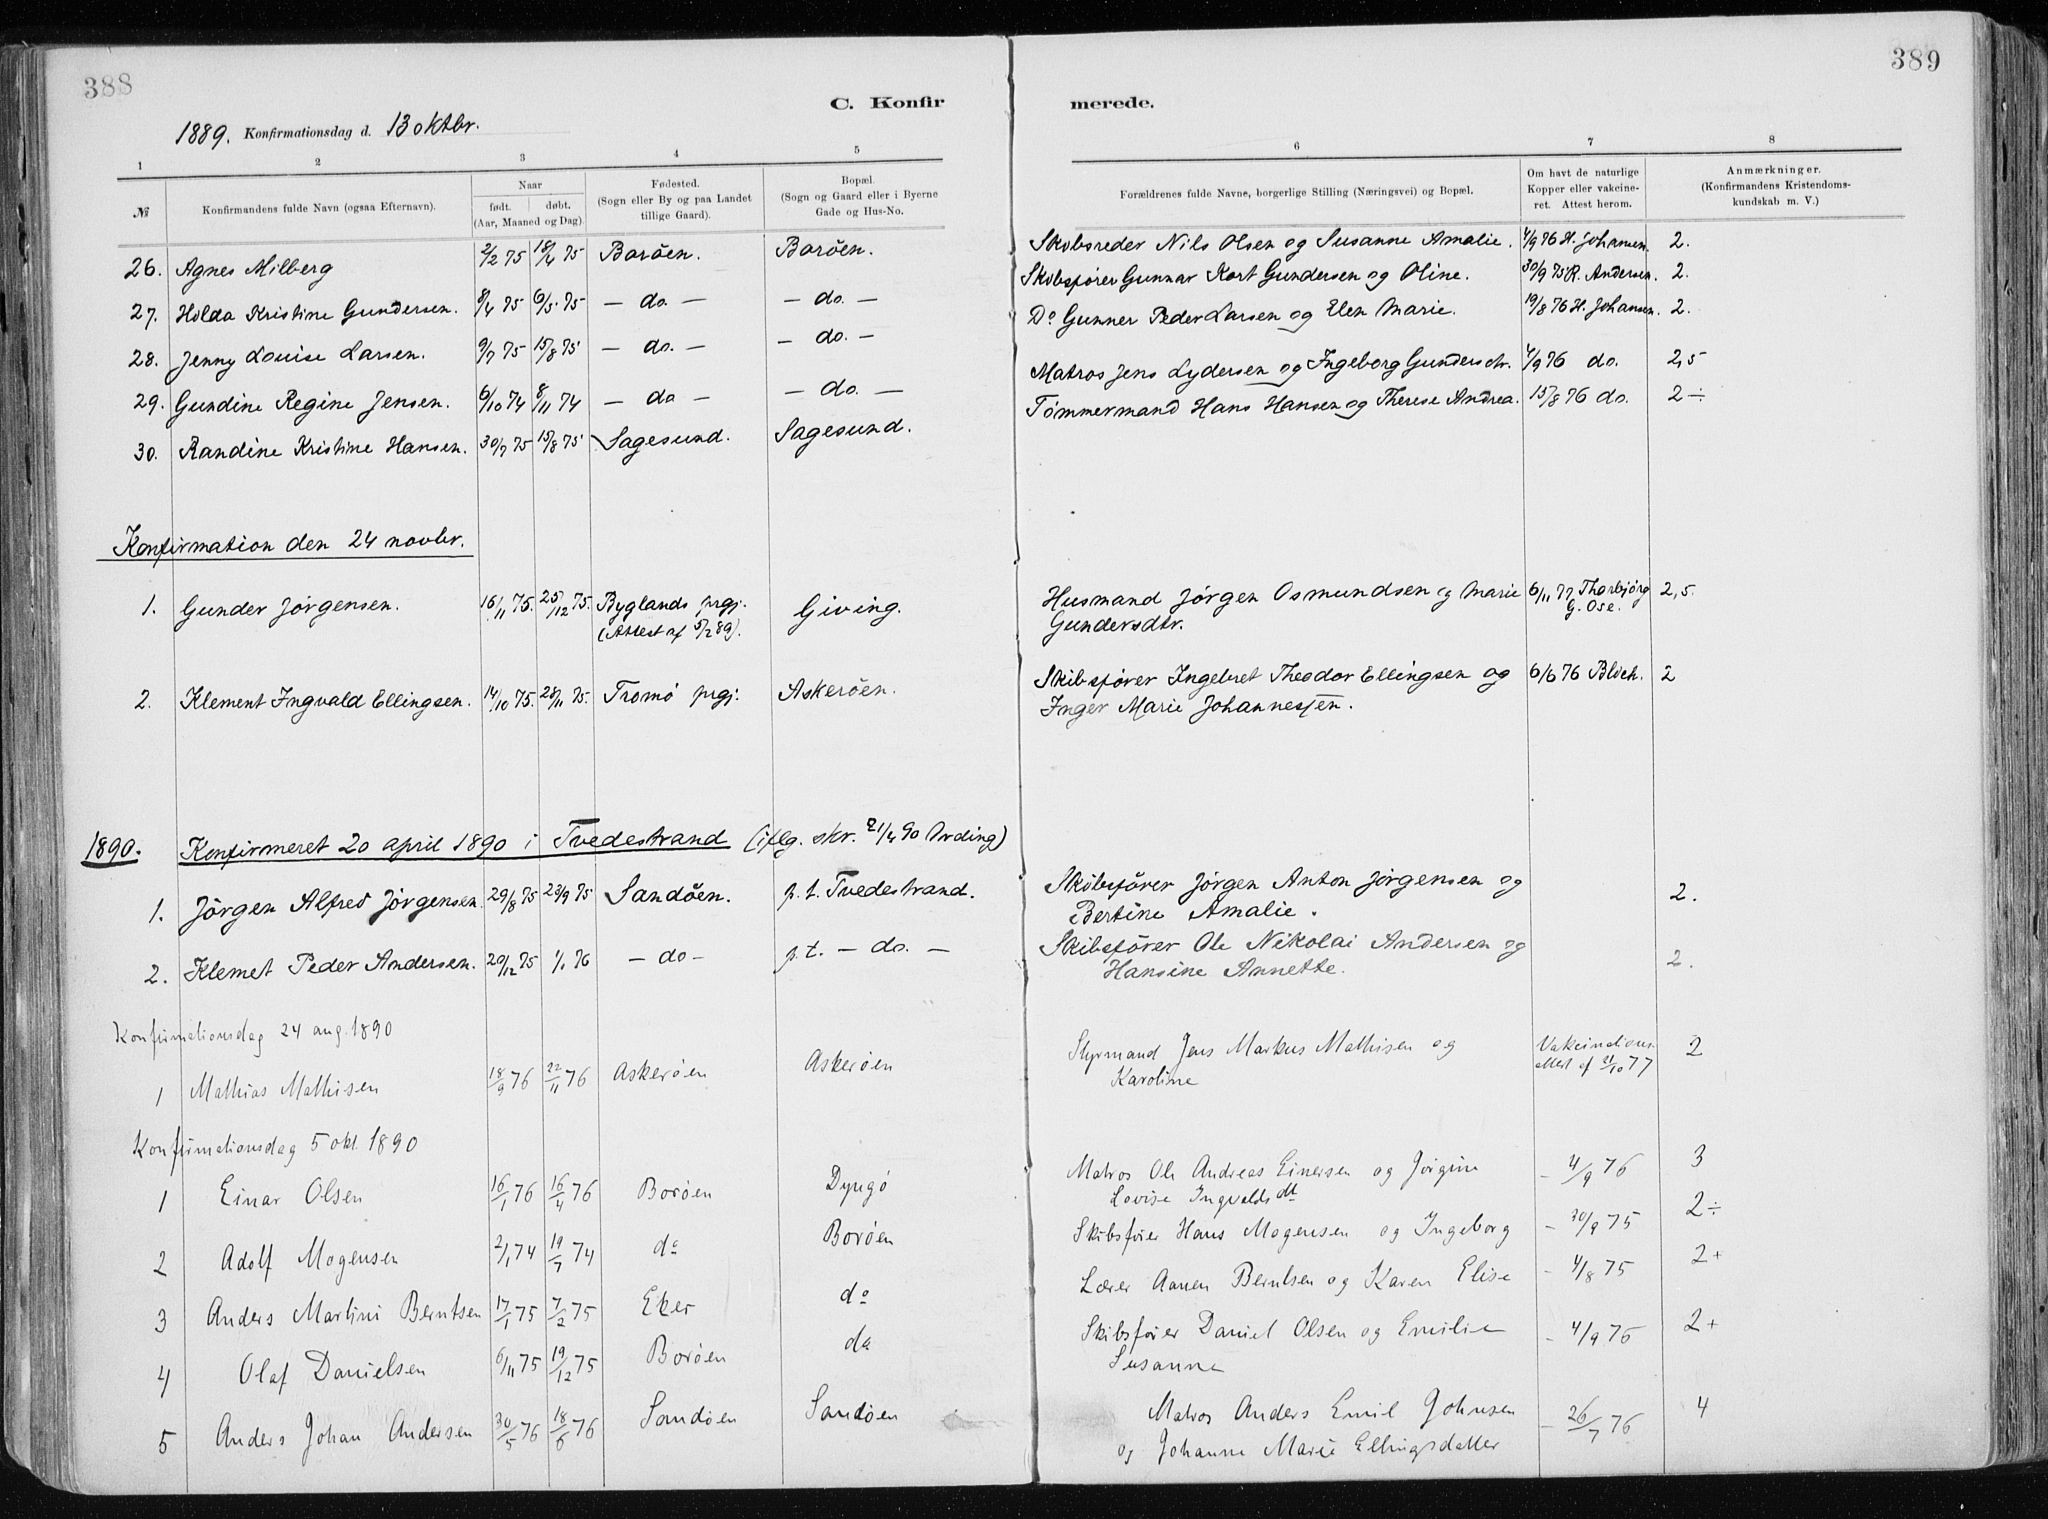 388
389
C. Konfirmerede.
1889. Konfirmationsdag d. 13 oktbr.
1 2 3 4 5 6 7 8
№ Konfirmandens fulde Navn (ogsaa Efternavn). Naar født. døbt. (Aar, Maaned og Dag). Fødested. (Sogn eller By og paa Landet tillige Gaard). Bopæl. (Sogn og Gaard eller i Byerne Gade og Hus-No. Forældrenes fulde Navne, borgerlige Stilling (Næringsvei) og Bopæl. Om havt de naturlige Kopper eller vakcineret. Attest herom. Anmærkninger. (Konfirmandens Kristendomskundskab m. V.)
26. Agnes Milberg 2/2 75 18/4 75 Borøen. Borøen. Skibsreder Nils Olsen og Susanne Amalie. 4/9 76 H. Johansen 2.
27. Hilda Kristine Gundersen. 8/4 75 6/5 75 — do. — — do. — Skibsfører Gunnar Kort Gundersen og Oline. 30/9 75 R. Andersen. 2.
28. Jenny Louise Larsen. 9/7 75 15/8 75 — do. — — do. — Do Gunner Peder Larsen og Elen Marie. 19/8 76 H. Johansen. 2.
29. Gundine Regine Jensen. 6/10 74 8/11 74 — do — — do. — Matros Jens Lydersen og Ingeborg Gundersdtr. 4/9 76 do. 2,5
30. Randine Kristine Hansen. 30/7 75 15/8 75 Sagesund. Sagesund. Tømmermand Hans Hansen og Therese Andrea. 15/8 76 do. 2 ÷
Konfirmation den 24 novbr.
1. Gunder Jørgensen. 16/11 75. 25/12 75. Byglands prgj. (Attest af 5/2 89). Giving. Husmand Jørgen Osmundsen og Marie Gundersdtr. 6/11 77 Thorbjørg G. Ose. 2,5.
2. Klement Ingvald Ellingsen. 14/10 75. 28/11 75. Tromø prgj. Askerøen. Skibsfører Ingebret Theodor Ellingsen og Inger Marie Johannesen. 6/6 76 Bloch. 2
1890. Konfirmeret 20 april 1890 i Tvedestrand (iflg. skr. 21/4 90 Arding)
1. Jörgen Alfred Jørgensen. 29/8 75 23/9 75 Sandøen. p.t. Tvedestrand. Skibsfører Jørgen Anton Jørgensen og Bertine Amalie. 2.
2. Klemet Peder Andersen. 20/12 75 1/1 76 — do — p.t. — do. — Skibsfører Ole Nikolai Andersen og Hansine Annette. 2.
Konfirmationsdag 24 aug. 1890
1 Mathias Mathisen 18/9 76 22/11 76 Askerøen Askerøen Styrmand Jens Markus Mathisen og Karoline Vakcinations attest af 21/10 77 2
Konfirmationsdag 5 okt. 1890
1 Einar Olsen 16/1 76 16/4 76 Borøen Dyngø Matros Ole Andreas Einersen og Jørgine Lovise Ingvaldsdt — 4/9 76 3
2 Adolf Mogensen 2/1 74 19/7 74 do Borøen Skibsfører Hans Mogensen og Ingeborg — 30/9 75 2 ÷
3 Anders Martini Berntsen 17/1 75 7/2 75 Eker do Lærer Aanen Berntsen og Karen Elise — 4/8 75 2+
4 Olaf Danielsen 6/11 75 19/12 75 Borøen do Skibsfører Daniel Olsen og Emilie Susanne — 4/9 76 2+
5 Anders Johan Andersen 30/5 76 18/6 76 Sandøen Sandøen Matros Anders Emil Johnsen og Johanne Marie Ellingsdatter — 26/7 76 4